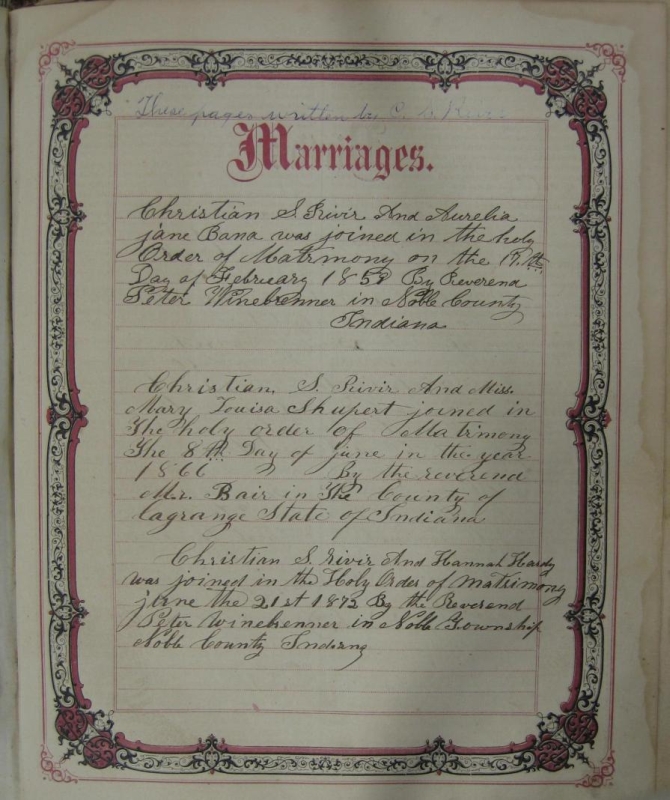 These pages written by C. S.
Marriages.
Christian S. Rivir And Aurelia
jane Bana was joined in the holy
Order of Matrmony on the 17th
Day of February 185 By Reverend
Peter Winebrenner in Noble County
Indiana
Christian. S. Rivir And Miss.
Mary Louisa Shupert joined in
The holy order of Matrimony
The 8th Day of june in the year
1866 " By the reverend
Mr. Bair in The County of
lagrange State of Indiana
Christian S. Rivir And Hannah Hardy
was joined in the Holy Order of matrimony
june the 21st 1872 By the Reverend
Peter Winebenner in Noble Township
Noble County Indiana